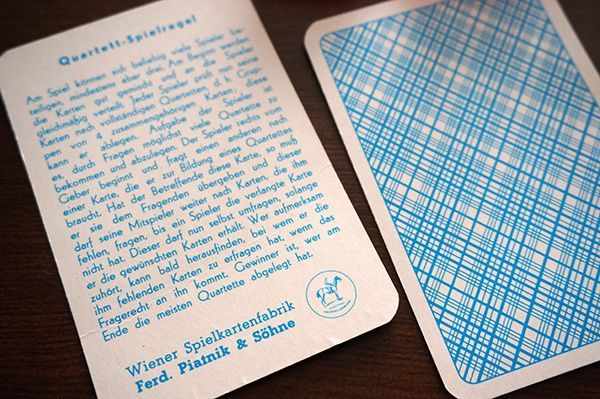 Quartett-Spielregel
Am Spiel können sich beliebig viele Spieler be-
teiligen, mindestens aber drei. Am Beginn werden
die Karten gut gemischt und an die Spieler
gleichmäßig verteilt. Jeder Spieler prüft nun seine
Karten nach vollständigen Quartetten, d. h. Grup-
pen von 4 zusammengehörigen Karten; diese
kann er ablegen. Aufgabe der Spieler ist
es, durch Fragen möglichst viele Quartette zu
bekommen und abzulegen. Der Spieler rechts vom
Geber beginnt und fragt einen anderen nach
einer Karte, die er zur Bildung eines Quartettes
braucht. Hat der Betreffende diese Karte, so muß
er sie dem Fragenden übergeben und dieser
darf seine Mitspieler weiter nach Karten, die ihm
fehlen, fragen, bis ein Spieler die verlangte Karte
nicht hat. Dieser darf nun selbst umfragen, solange
er die gewünschten Karten erhält. Wer aufmerksam
zuhört, kann bald herausfinden, bei wem er die
ihm fehlenden Karten zu erfragen hat, wenn das
Fragerecht an ihn kommt. Gewinner ist, wer am
Ende die meisten Quartette abgelegt hat.
Wiener Spielkartenfabrik
Ferd. Piatnik & Söhne